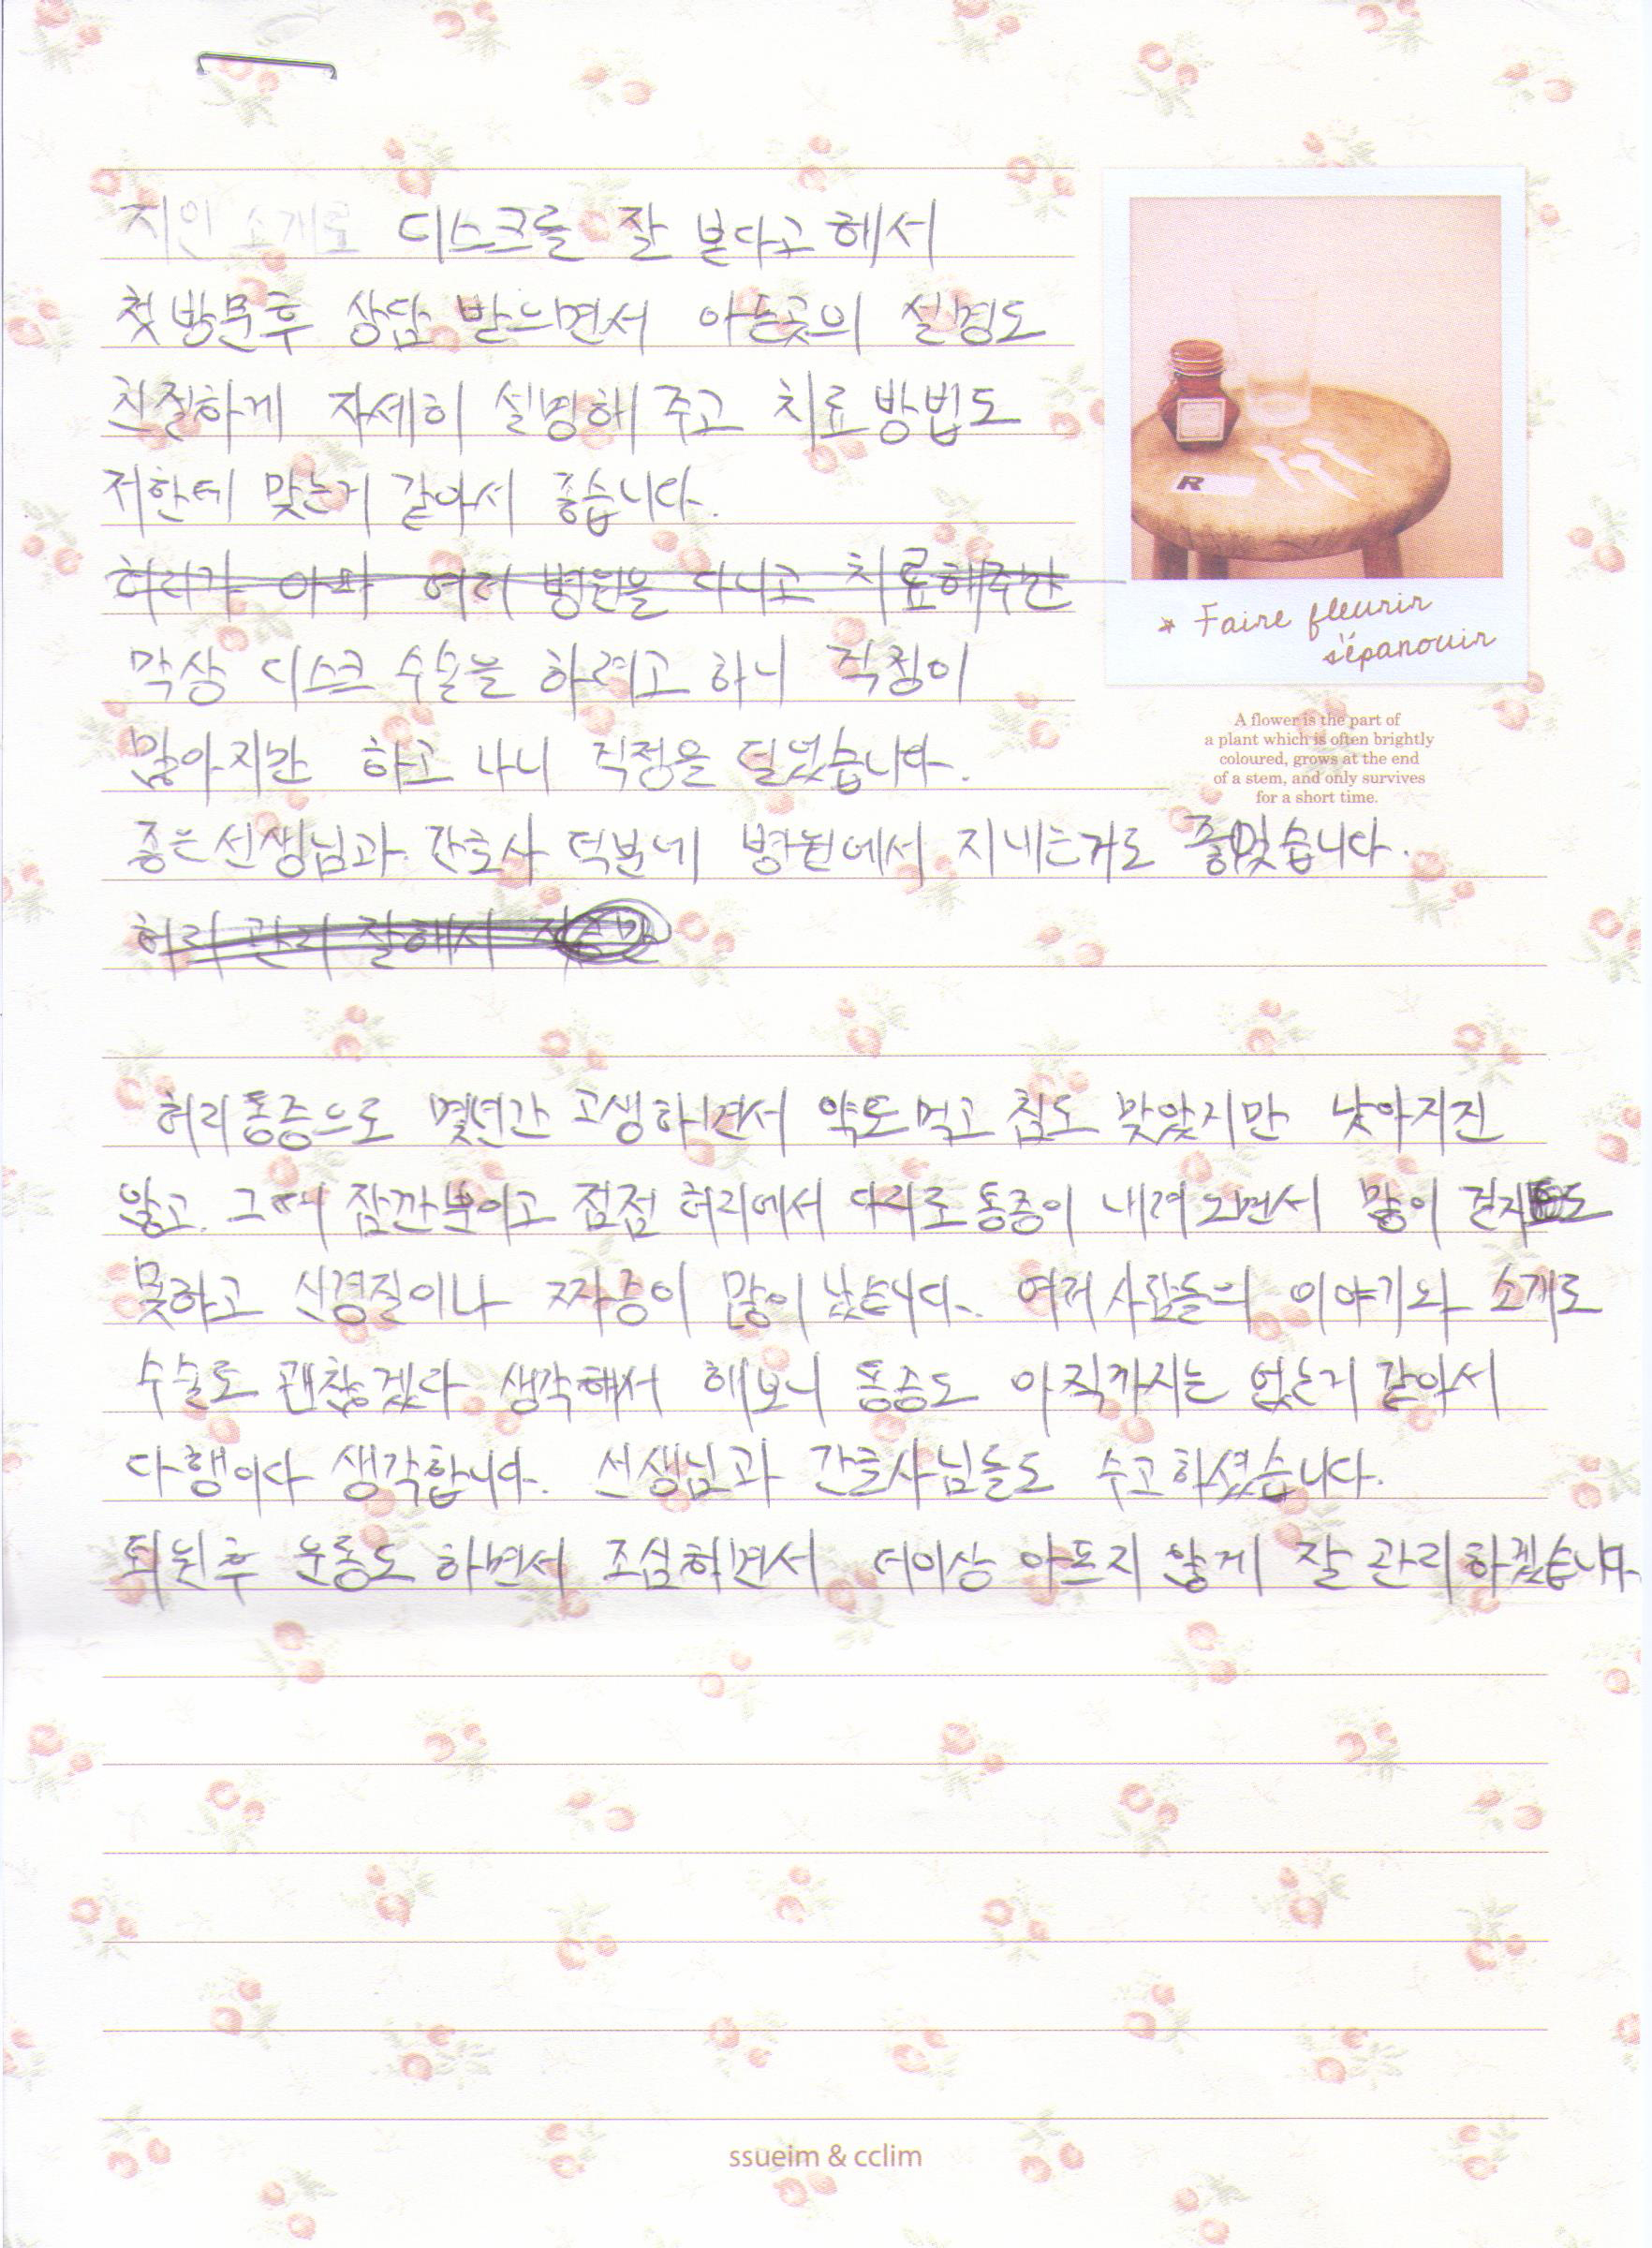 지인 소개로 디스크를 잘 본다고 해서
첫 방문후 상담 받으면서 아픈곳의 설명도
친절하게 자세히 설명해 주고 치료방법도
저한테 맞는거 같아서 좋습니다.
허리가 아파 여러 병원을 다니고 치료해주간
막상 디스크 수술을 하려고 하니 걱정이
많아지만 하고 나니 걱정을 덜었습니다.
좋은선생님과 간호사 덕분에 병원에서 지내는거도 좋았습니다.
허리 관리 잘해서
허리통증으로 몇년간 고생하면서 약도먹고 침도 맞았지만 낫아지진
않고. 그때 잠깐뿐이고 점점 허리에서 다리로 통증이 내려오면서 많이 걷지도
못하고 신경질이나 짜증이 많이 났습니다. 여러사람들의 이야기와 소개로
수술도 괜찮겠다 생각해서 해보니 통증도 아직까지는 없는거 같아서
다행이다 생각합니다. 선생님과 간호사님들도 수고하셨습니다.
퇴원후 운동도 하면서 조심하면서 더이상 아프지 않게 잘 관리하겠습니다.
* Faire fleurir
s'épanouir
A flower is the part of
a plant which is often brightly
coloured, grows at the end
of a stem, and only survives
for a short time.
R
ssueim & cclim